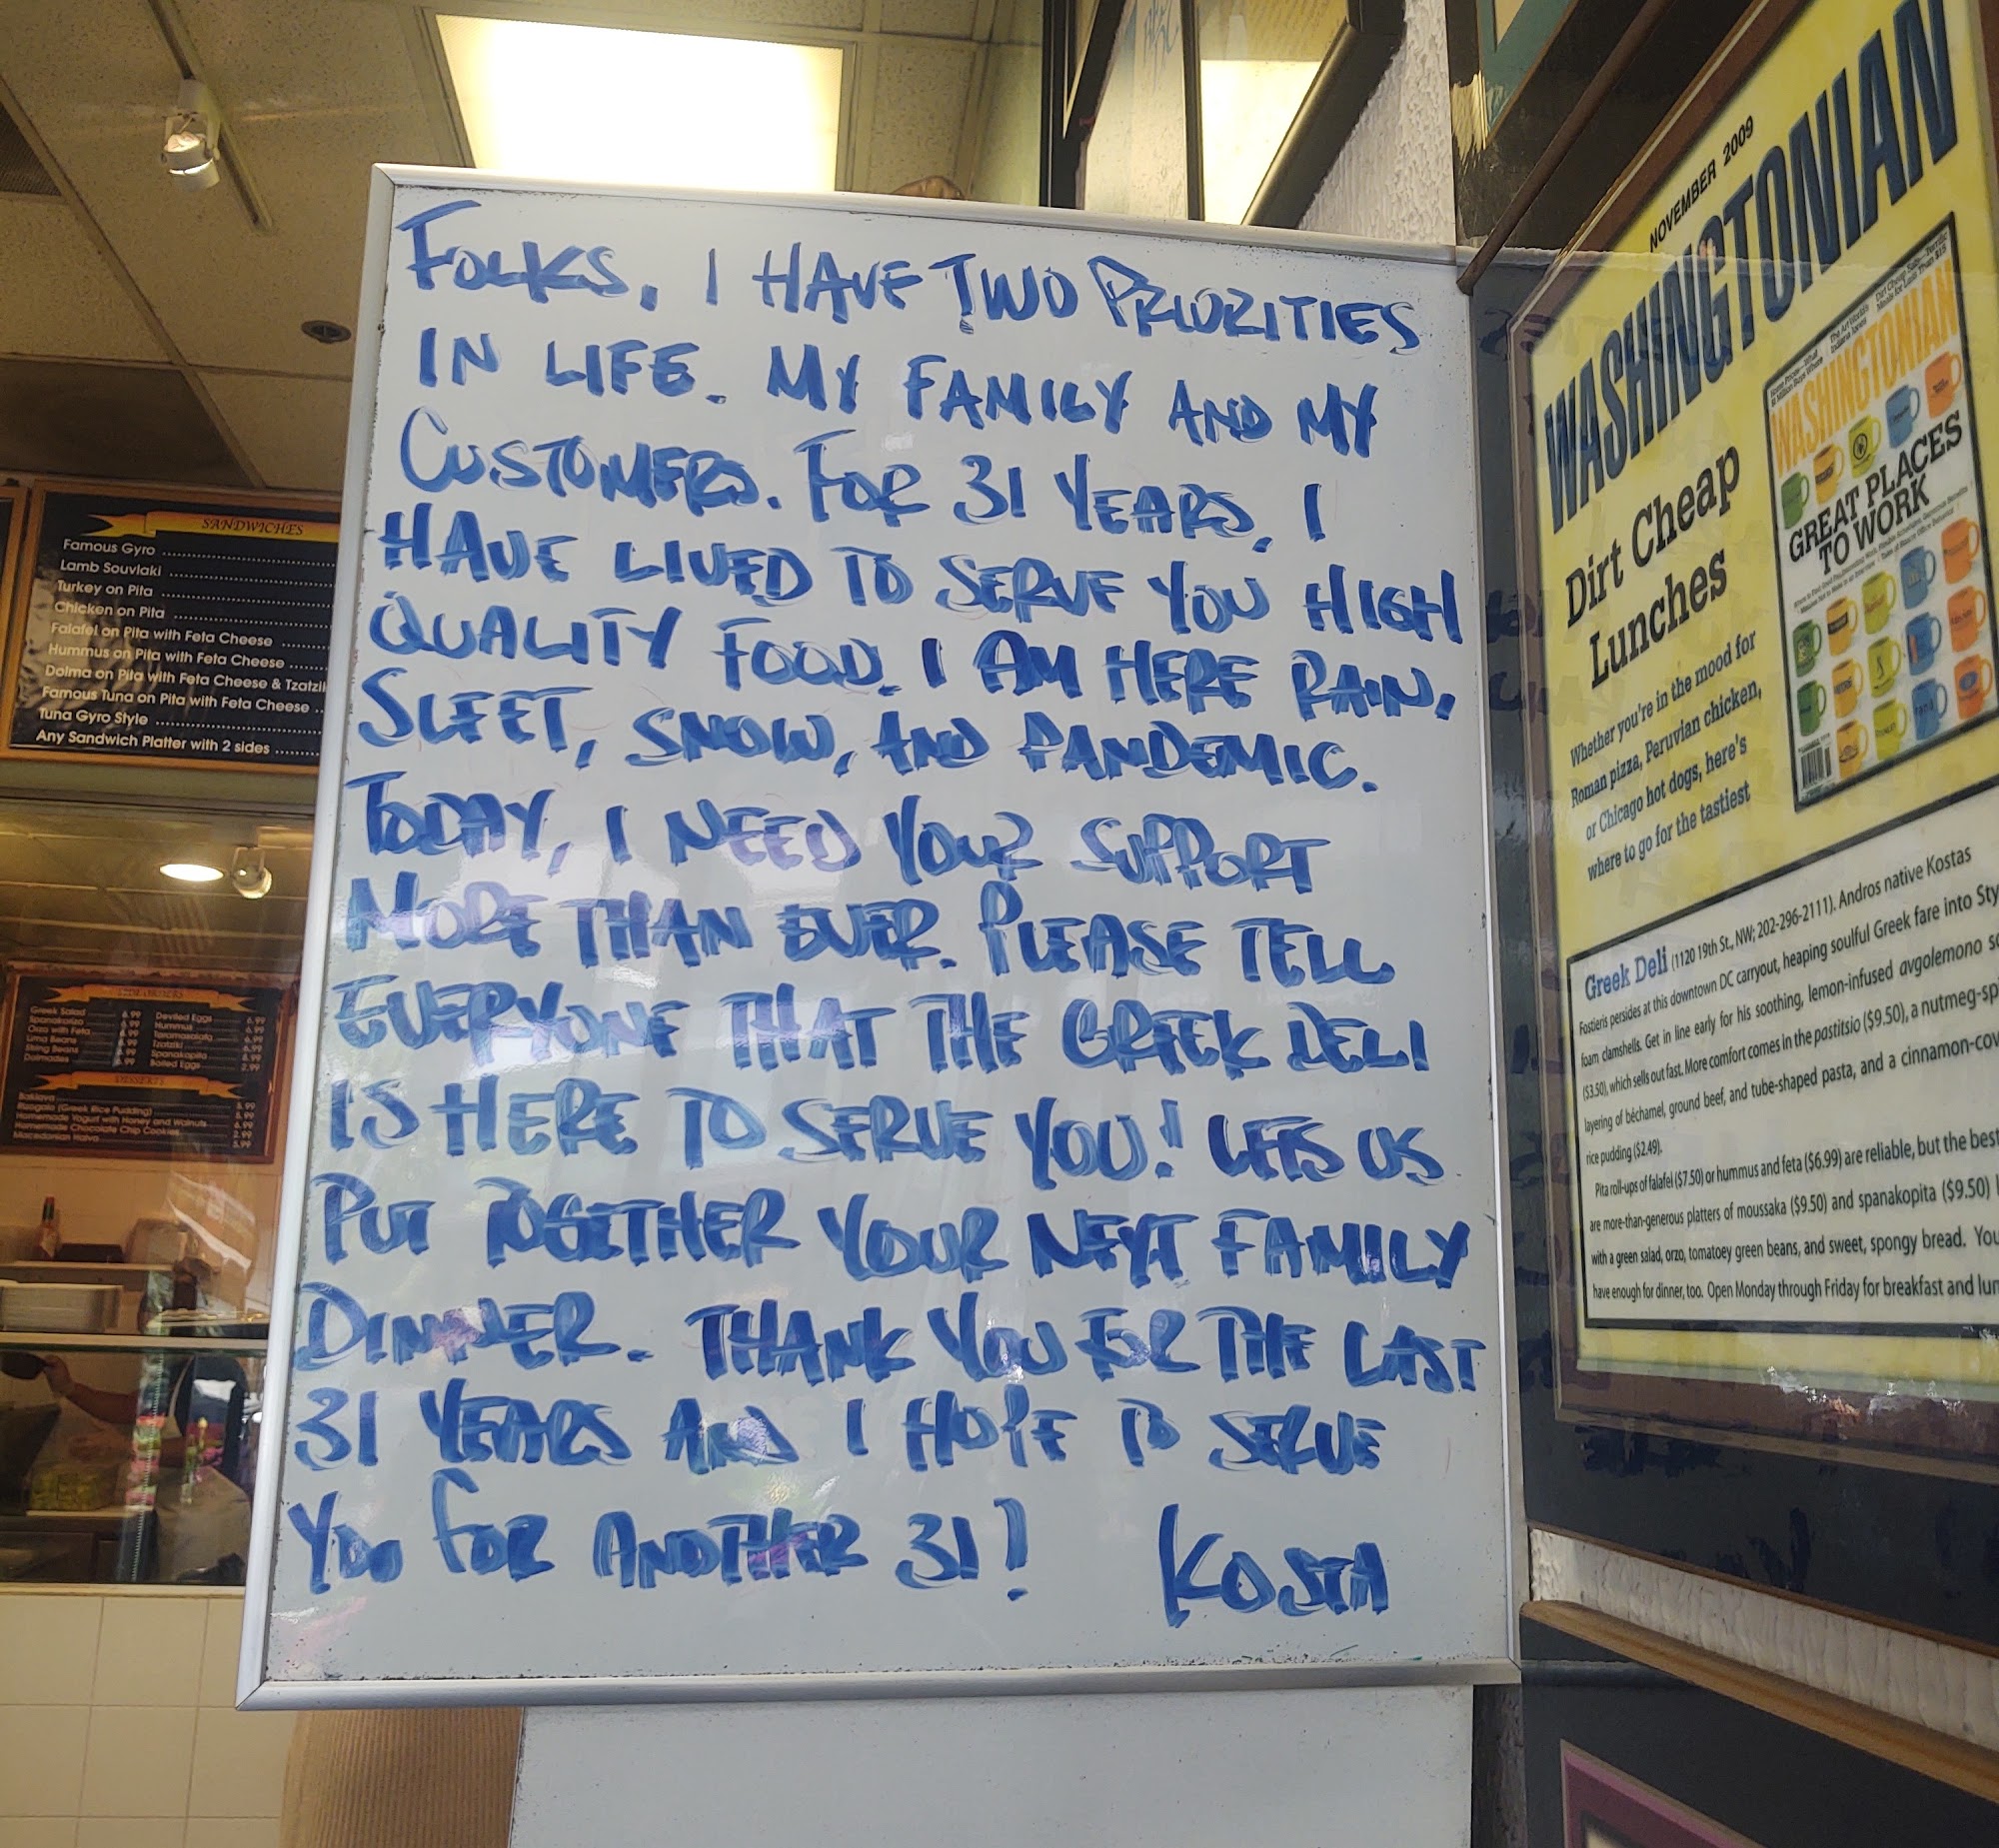 FOLKS, I HAVE TWO PRIORITIES
IN LIFE. MY FAMILY AND MY
CUSTOMERS. FOR 31 YEARS, I
HAVE LIVED TO SERVE YOU HIGH
QUALITY FOOD. I AM HERE RAIN,
SLEET, SNOW, AND PANDEMIC.
TODAY, I NEED YOUR SUPPORT
MORE THAN EVER. PLEASE TELL
EVERYONE THAT THE GREEK DELI
IS HERE TO SERVE YOU! LETS US
PUT TOGETHER YOUR NEXT FAMILY
DINNER. THANK YOU FOR THE LAST
31 YEARS AND I HOPE TO SERVE
YOU FOR ANOTHER 31! KOSTA
SANDWICHES
Famous Gyro
Lamb Souvlaki
Turkey on Pita
Chicken on Pita
Falafel on Pita with Feta Cheese
Hummus on Pita with Feta Cheese
Dolma on Pita with Feta Cheese & Tzatziki
Famous Tuna on Pita with Feta Cheese
Tuna Gyro Style
Any Sandwich Platter with 2 sides
Greek Salad 6.99
Spanakorizo
Orzo with Feta
Lima Beans
String Beans
Dolmades
Deviled Eggs
Hummus
Taramosalata
Tzatziki
Spanakopita
Boiled Eggs 2.99
DESSERTS
Baklava
Rizogalo (Greek Rice Pudding)
Homemade Yogurt with Honey and Walnuts
Homemade Chocolate Chip Cookies
Macedonian Halva
NOVEMBER 2009
WASHINGTONIAN
Dirt Cheap
Lunches
Whether you're in the mood for
Roman pizza, Peruvian chicken,
or Chicago hot dogs, here's
where to go for the tastiest
WASHINGTONIAN
GREAT PLACES
TO WORK
Greek Deli (1120 19th St., NW; 202-296-2111). Andros native Kostas
Fostieris persides at this downtown DC carryout, heaping soulful Greek fare into Sty
foam clamshells. Get in line early for his soothing, lemon-infused avgolemono so
($3.50), which sells out fast. More comfort comes in the pastitsio ($9.50), a nutmeg-sp
layering of béchamel, ground beef, and tube-shaped pasta, and a cinnamon-cov
rice pudding ($2.49).
Pita roll-ups of falafel ($7.50) or hummus and feta ($6.99) are reliable, but the best
are more-than-generous platters of moussaka ($9.50) and spanakopita ($9.50)
with a green salad, orzo, tomatoey green beans, and sweet, spongy bread. You
have enough for dinner, too. Open Monday through Friday for breakfast and lun